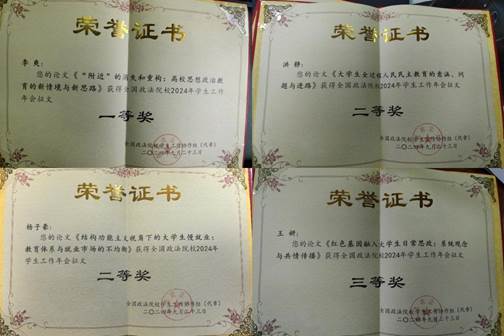 荣誉证书
李爽：
您的论文《“附近”的消失和重构：高校思想政治教
育的新情境与新思路》获得全国政法院校2024年学生工作
年会征文
一等奖
全国政法院校学生工作协作组（代章）
二〇二四年九月二十三日
荣誉证书
洪静：
您的论文《大学生全过程人民民主教育的意涵、问
题与进路》获得全国政法院校2024年学生工作年会征文
二等奖
全国政法院校学生工作协作组（代章）
二〇二四年九月二十三日
荣誉证书
杨子豪：
您的论文《结构功能主义视角下的大学生慢就业：
教育体系与就业市场的不均衡》获得全国政法院校2024年
学生工作年会征文
二等奖
全国政法院校学生工作协作组（代章）
二〇二四年九月二十三日
荣誉证书
王妍：
您的论文《红色基因融入大学生日常思政：系统观念
与共情传播》获得全国政法院校2024年学生工作年会征文
三等奖
全国政法院校学生工作协作组（代章）
二〇二四年九月二十三日